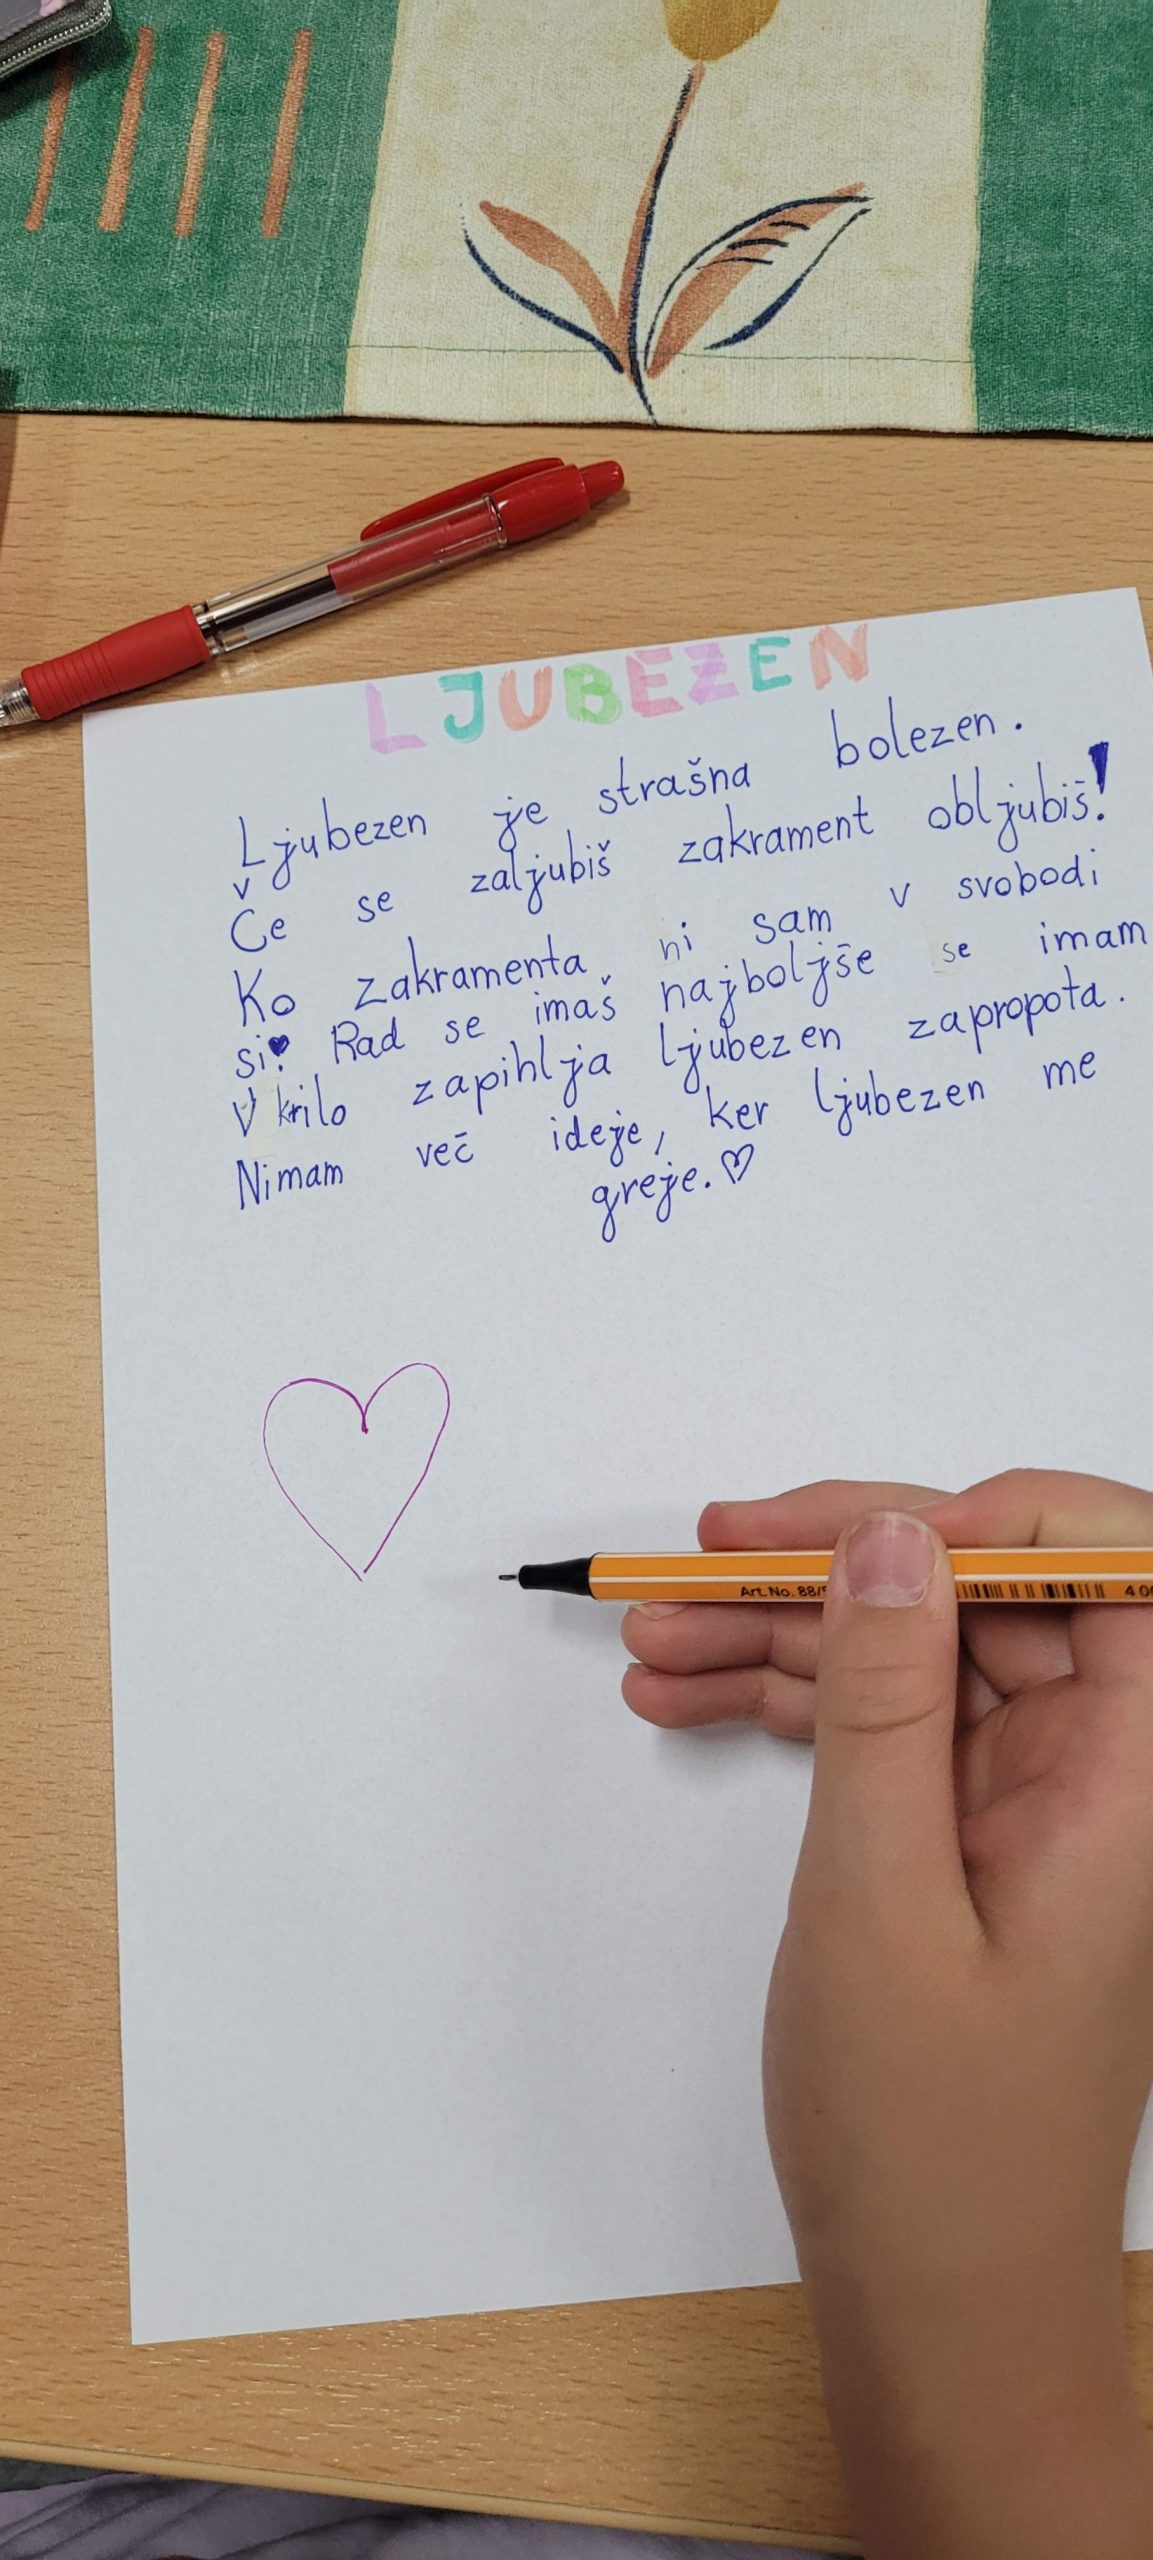 LJUBEZEN
Ljubezen je strašna bolezen.
Če se zaljubiš zakrament obljubiš!
Ko zakramenta ni sam v svobodi
si! Rad se imaš najboljše se imam
V krilo zapihlja ljubezen zapropota.
Nimam več ideje, ker ljubezen me
greje.♡
Art. No. 88/
4 00